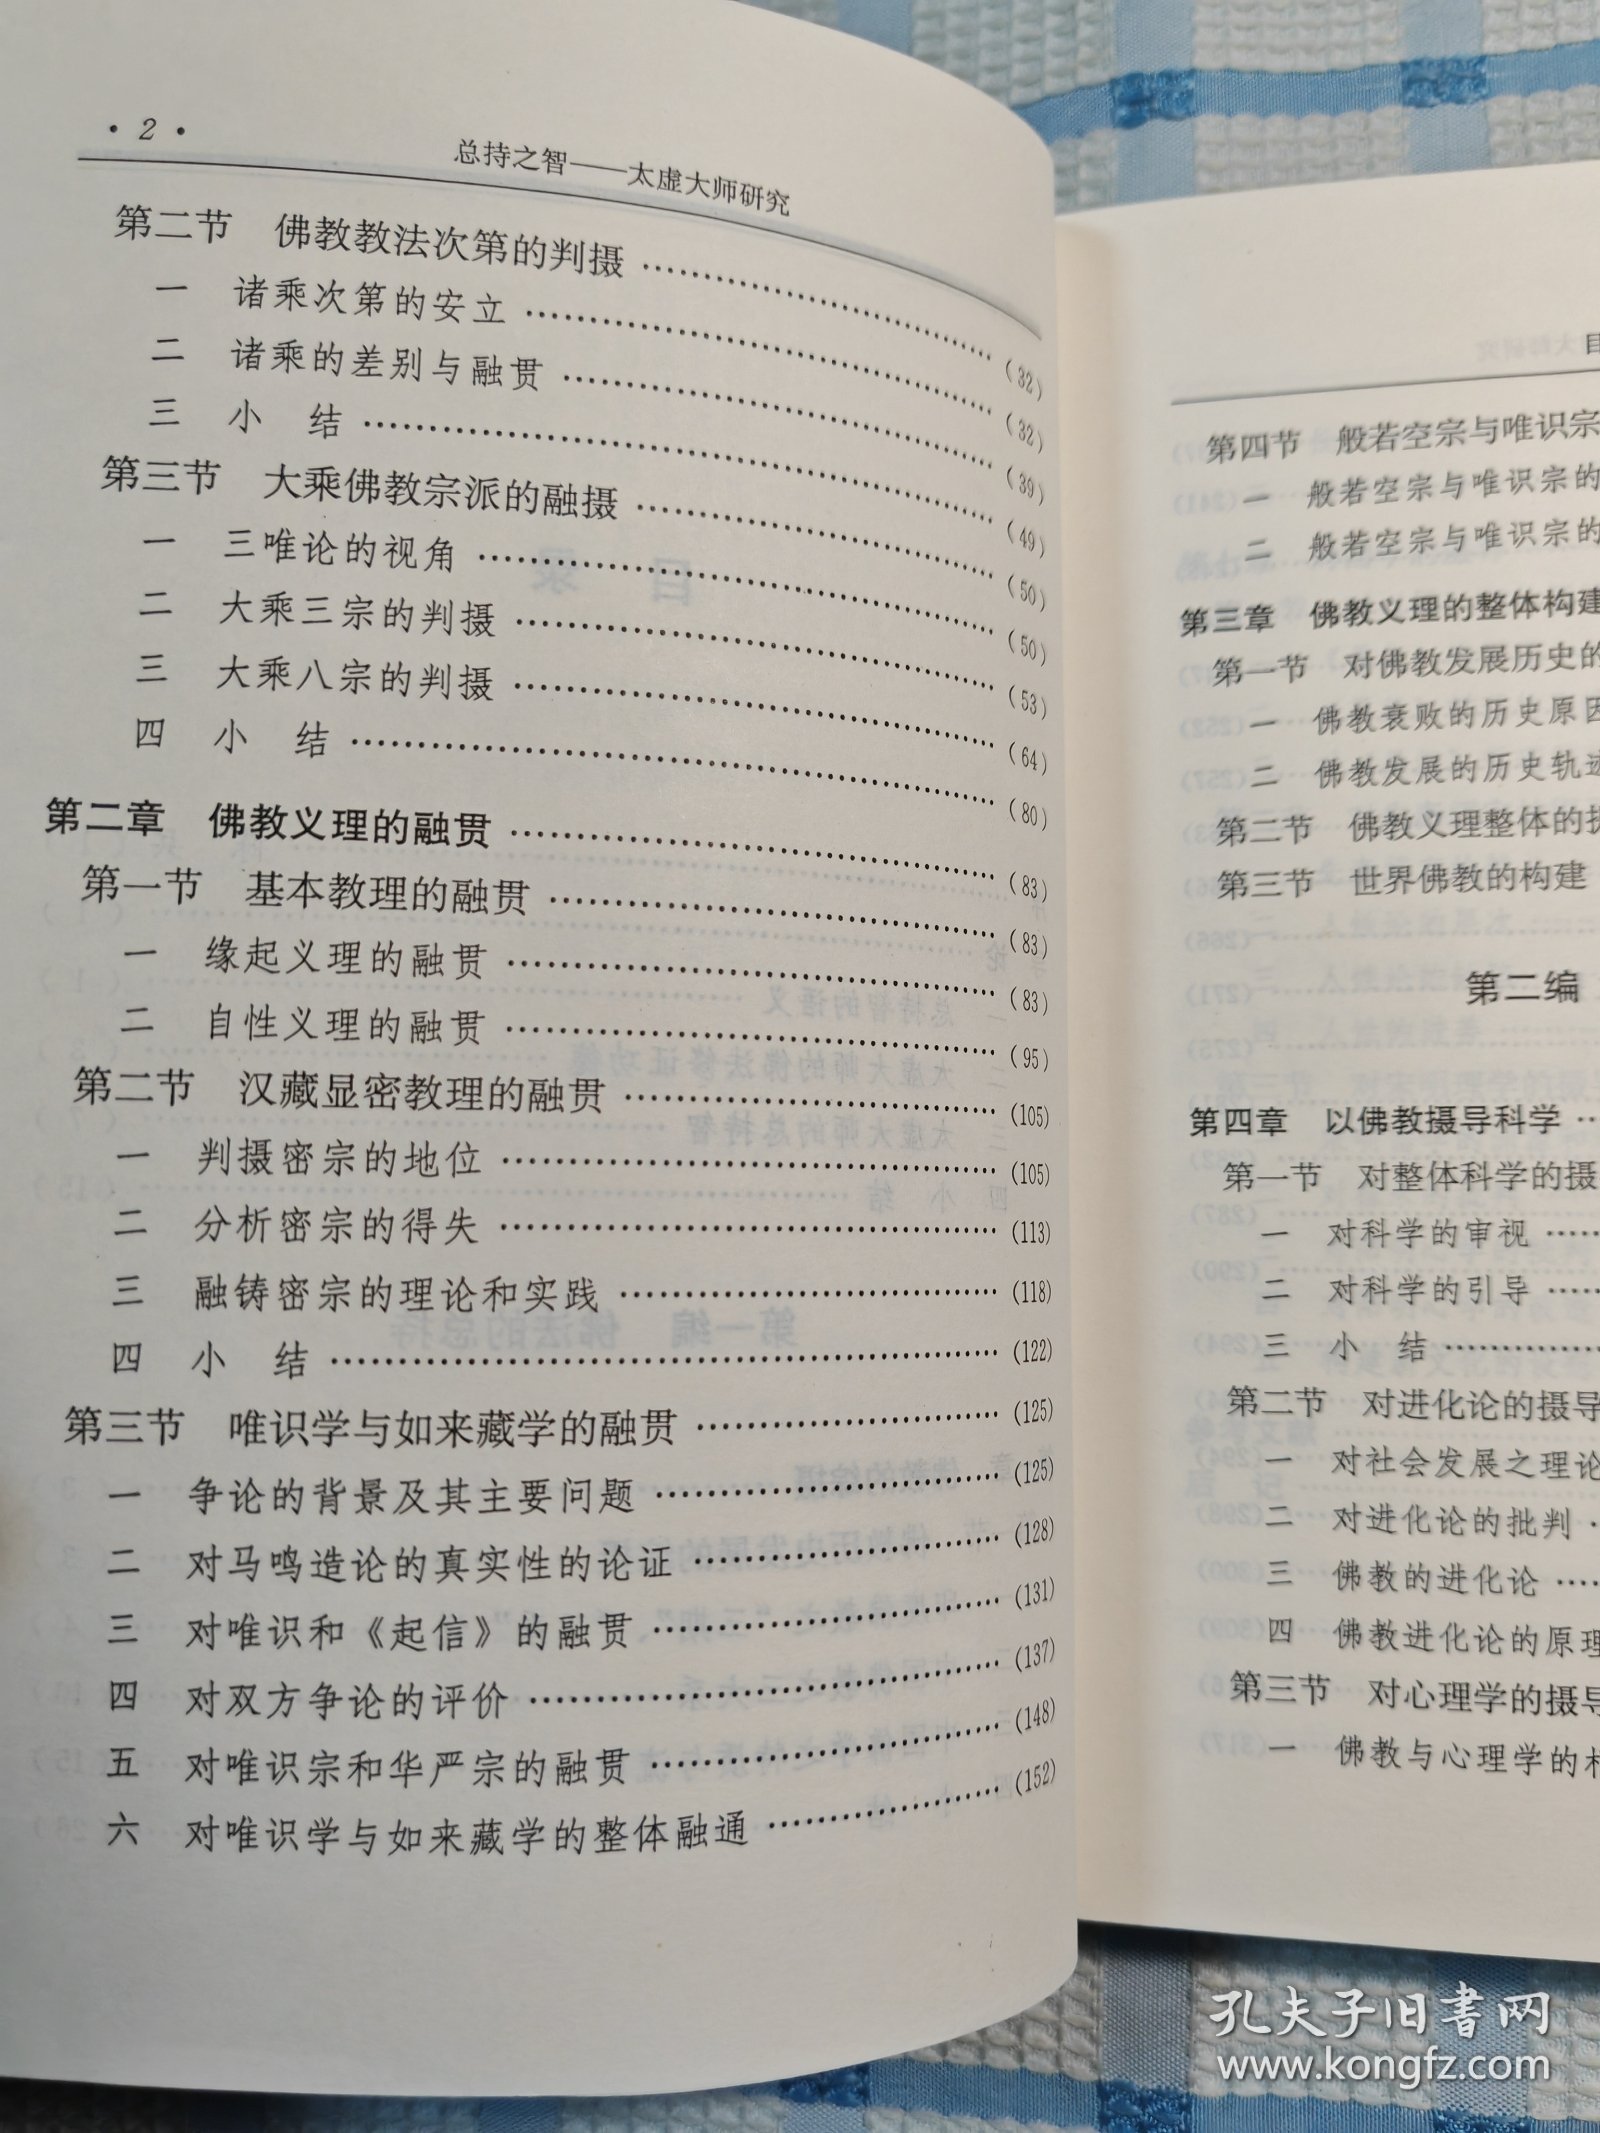 · 2 ·
总持之智——太虚大师研究
第二节 佛教教法次第的判摄 ……………… (32)
一 诸乘次第的安立 ……………… (32)
二 诸乘的差别与融贯 ……………… (39)
三 小 结 ……………… (49)
第三节 大乘佛教宗派的融摄 ……………… (50)
一 三唯论的视角 ……………… (50)
二 大乘三宗的判摄 ……………… (53)
三 大乘八宗的判摄 ……………… (64)
四 小 结 ……………… (80)
第二章 佛教义理的融贯 ……………… (83)
第一节 基本教理的融贯 ……………… (83)
一 缘起义理的融贯 ……………… (83)
二 自性义理的融贯 ……………… (95)
第二节 汉藏显密教理的融贯 ……………… (105)
一 判摄密宗的地位 ……………… (105)
二 分析密宗的得失 ……………… (113)
三 融铸密宗的理论和实践 ……………… (118)
四 小 结 ……………… (122)
第三节 唯识学与如来藏学的融贯 ……………… (125)
一 争论的背景及其主要问题 ……………… (125)
二 对马鸣造论的真实性的论证 ……………… (128)
三 对唯识和《起信》的融贯 ……………… (131)
四 对双方争论的评价 ……………… (137)
五 对唯识宗和华严宗的融贯 ……………… (148)
六 对唯识学与如来藏学的整体融通 ……………… (152)
目
第四节 般若空宗与唯识宗
一 般若空宗与唯识宗的
二 般若空宗与唯识宗的
第三章 佛教义理的整体构建
第一节 对佛教发展历史的
一 佛教衰败的历史原因
二 佛教发展的历史轨迹
第二节 佛教义理整体的
第三节 世界佛教的构建
第二编
第四章 以佛教摄导科学 …
第一节 对整体科学的摄
一 对科学的审视 ……
二 对科学的引导 ……
三 小 结 ………………
第二节 对进化论的摄导
一 对社会发展之理论
二 对进化论的批判 ·
三 佛教的进化论 ……
四 佛教进化论的原理
第三节 对心理学的摄导
一 佛教与心理学的
孔夫子旧书网
www.kongfz.com